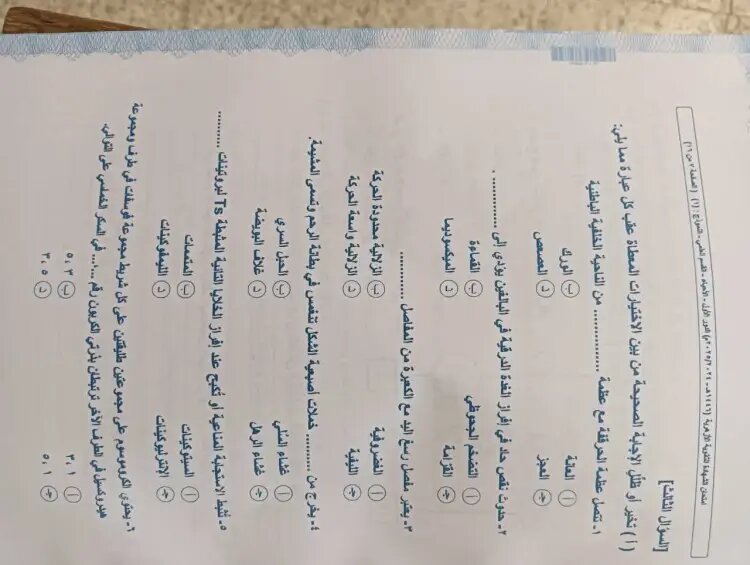 امتحان الشهادة الثانوية الأزهرية (١٤٤٦هـ - ٢٠٢٤/٢٠٢٥م) الدور الأول - الأحياء - القسم العلمي - النموذج : (١) (الصفحة ٢ من ١٦)
[السؤال الثالث]
(أ) تخير أو ظلل الإجابة الصحيحة من بين الاختيارات المعطاة عقب كل عبارة مما يلي:
١- تتصل عظمة الحرقفة مع عظمة .............. من الناحية الخلفية الباطنية
أ العانة ب الورك
ج العجز د العصعص
٢- حدوث نقص حاد في إفراز الغدة الدرقية في البالغين يؤدي إلى ..............
أ التضخم الجحوظي ب القماءة
ج القزامة د الميكسوديما
٣- يعتبر مفصل رسغ اليد مع الكعبرة من المفاصل ..............
أ الغضروفية ب الزلالية محدودة الحركة
ج الليفية د الزلالية واسعة الحركة
٤- يخرج من .............. خملات أصبعية الشكل تنغمس في بطانة الرحم وتسمى المشيمة.
أ غشاء السلى ب الحبل السري
ج غشاء الرهل د غلاف البويضة
٥- تثبط الاستجابة المناعية أو تكبح عند إفراز الخلايا التائية المثبطة Ts لبروتينات ..............
أ السيتوكينات ب المتممات
ج الإنترليوكينات د الليمفوكينات
٦- يحتوي الكروموسوم على مجموعتين طليقتين على كل شريط مجموعة فوسفات في طرف ومجموعة
هيدروكسيل في الطرف الآخر ترتبطان بذرتي الكربون رقم ...... في السكر الخماسي على التوالي.
أ ٣ ، ١ ب ٥ ، ٣
ج ٥ ، ١ د ٣ ، ٥